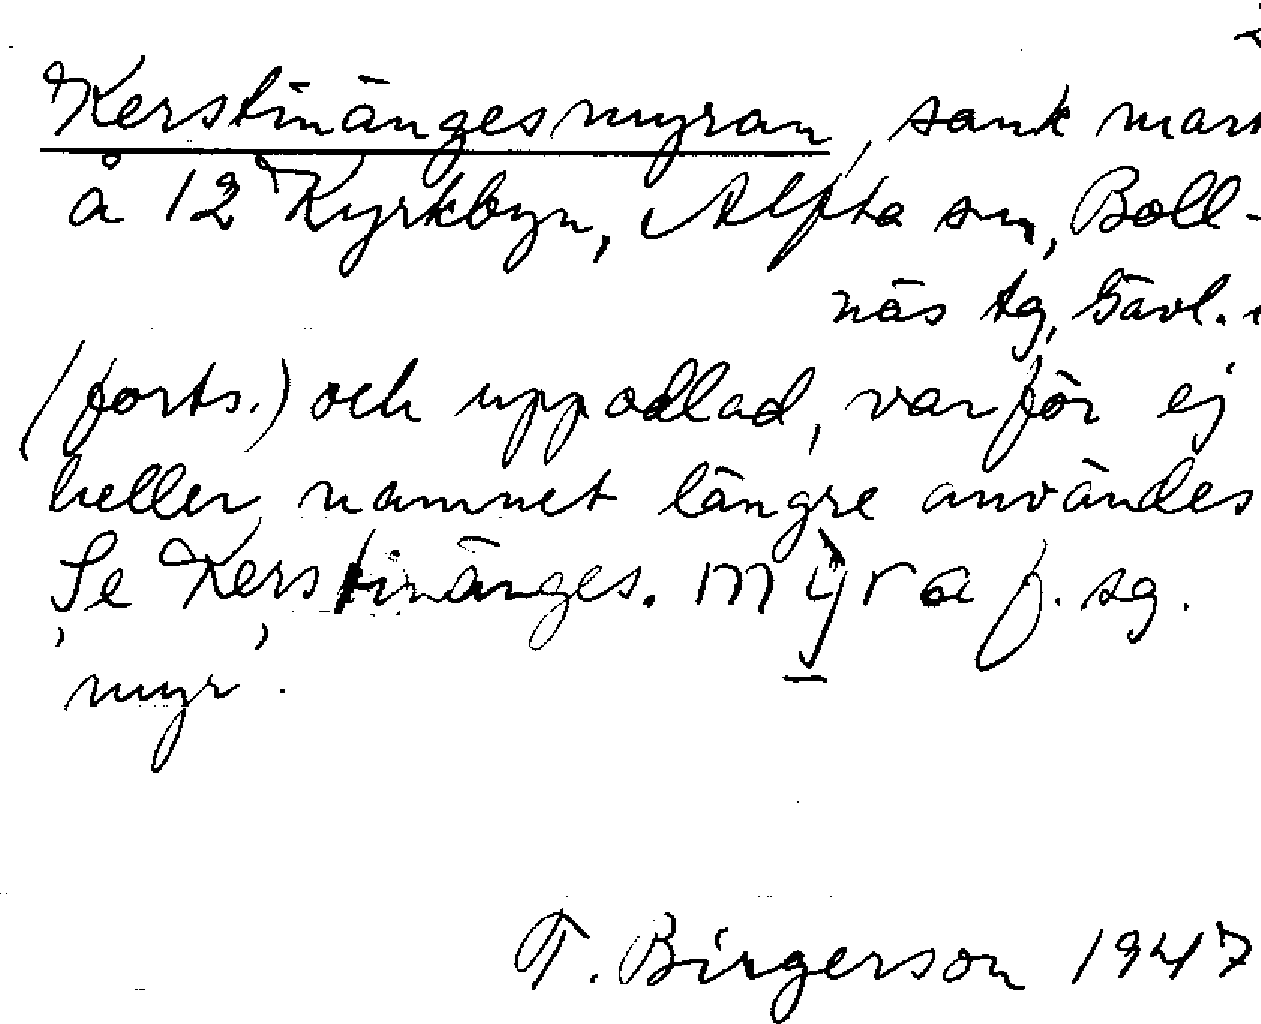 Kerstinängesmyran, sank mark
å 12 Kyrkbyn, Alfta sn, Boll-
näs tg, Gävl.
(forts.) och uppodlad, varför ej
heller namnet längre användes
Se Kerstinänges. myra f. sg.
, ,
myr.
T. Birgerson 1947